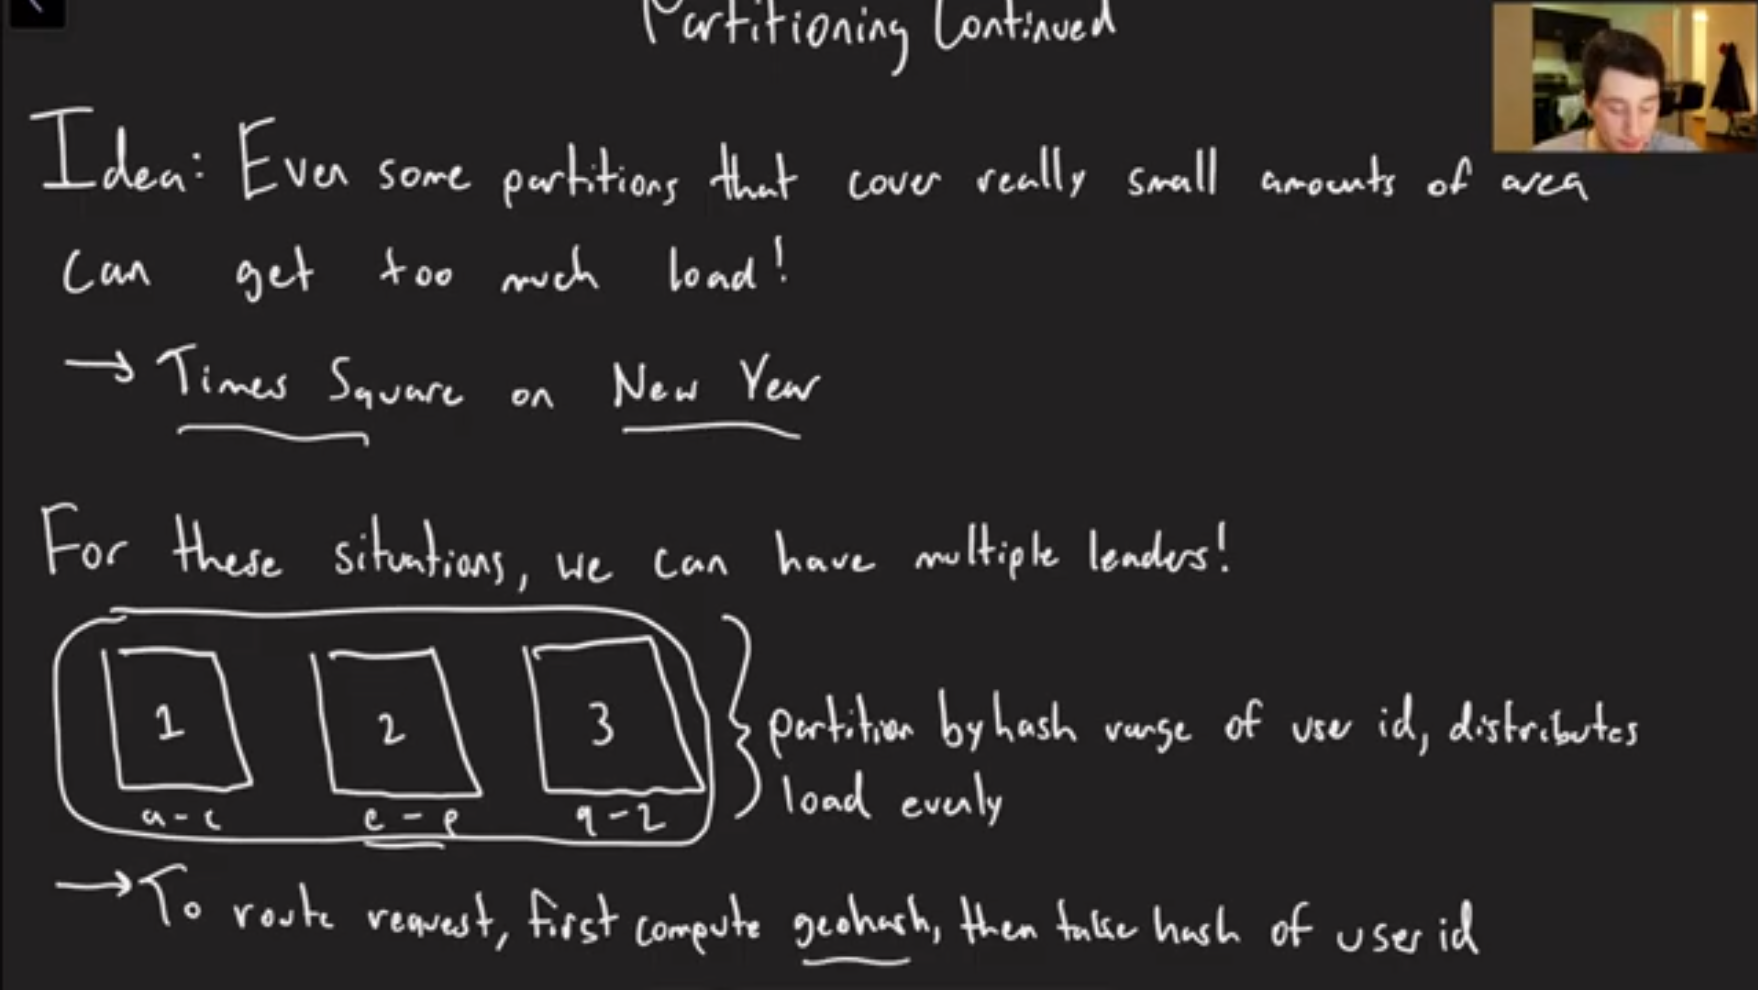 Partitioning Continued
Idea: Even some partitions that cover really small amounts of area
can get too much load!
→ Times Square on New Year
For these situations, we can have multiple leaders!
1 2 3
partition by hash range of user id, distributes
load evenly
a-c e-p q-z
→ To route request, first compute geohash, then take hash of user id